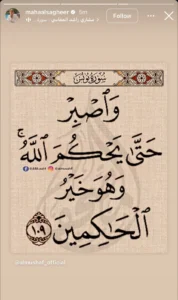 mahraalsagheer 5m
Follow
سورة يونس
وَٱصْبِرْ
حَتَّىٰ يَحْكُمَ ٱللَّهُ ۚ
وَهُوَ خَيْرُ
ٱلْحَـٰكِمِينَ ١٠٩